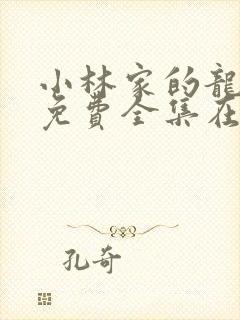 小林家的龍
免費全集在
孔奇